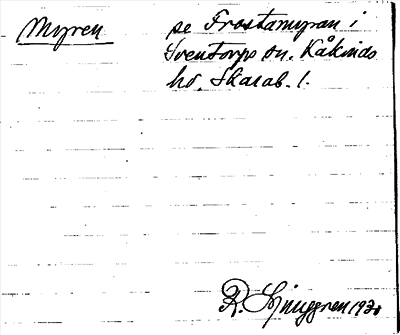 Myren se Frostamyran i
Sventorps sn. Kåkinds
hd. Skarab. l.
R. Ljunggren 1930